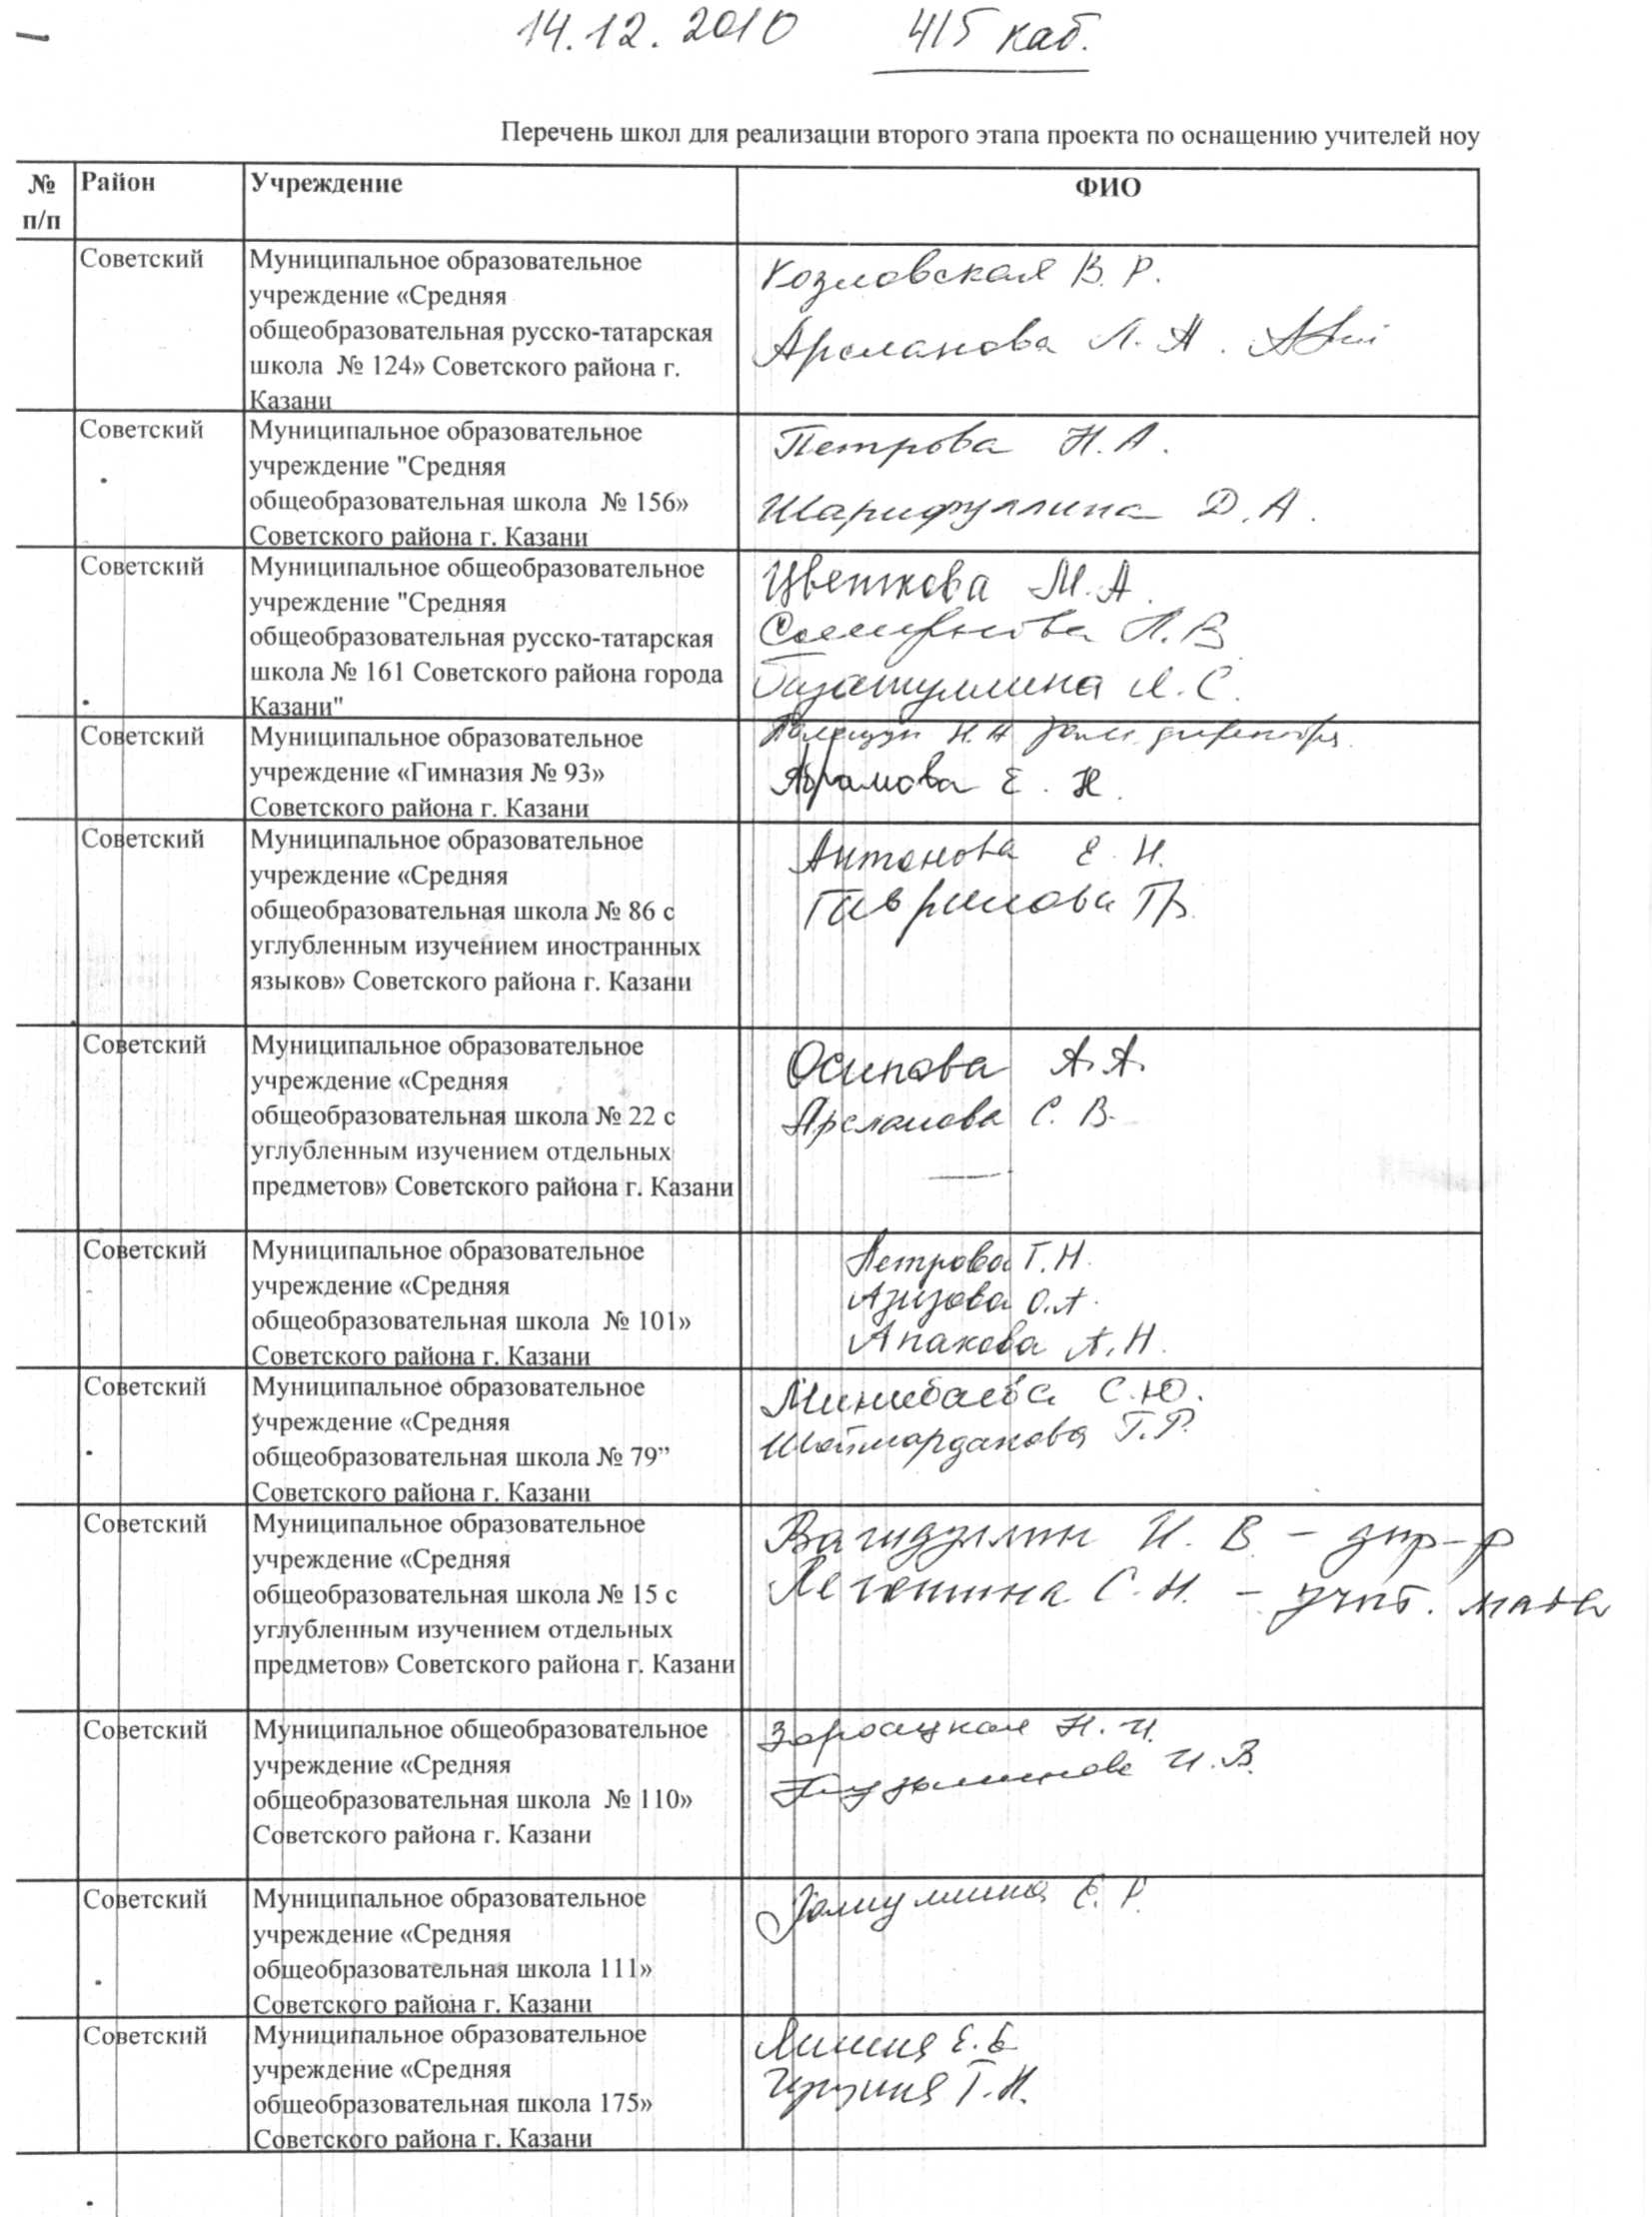 14.12.2010 415 каб.
Перечень школ для реализации второго этапа проекта по оснащению учителей ноу
№ Район Учреждение ФИО
п/п
Советский Муниципальное образовательное
учреждение «Средняя
общеобразовательная русско-татарская
школа № 124» Советского района г.
Казани
Козловская В. Р.
Арсланова Л. А.
Советский Муниципальное образовательное
учреждение "Средняя
общеобразовательная школа № 156»
Советского района г. Казани
Петрова Н.А.
Шарифуллина Д.А.
Советский Муниципальное общеобразовательное
учреждение "Средняя
общеобразовательная русско-татарская
школа № 161 Советского района города
Казани"
Цветкова М.А.
Л.В
Л.С.
Советский Муниципальное образовательное
учреждение «Гимназия № 93»
Советского района г. Казани
Н.А. зам. директора
Абрамова Е. Н.
Советский Муниципальное образовательное
учреждение «Средняя
общеобразовательная школа № 86 с
углубленным изучением иностранных
языков» Советского района г. Казани
Антонова Е. Н.
Гаврилова
Советский Муниципальное образовательное
учреждение «Средняя
общеобразовательная школа № 22 с
углубленным изучением отдельных
предметов» Советского района г. Казани
Осипова А.А.
Арсланова С. В.
Советский Муниципальное образовательное
учреждение «Средняя
общеобразовательная школа № 101»
Советского района г. Казани
Петрова Г.Н.
Азизова О.А.
Апакова А.Н.
Советский Муниципальное образовательное
учреждение «Средняя
общеобразовательная школа № 79”
Советского района г. Казани
Минибаева С.Ю.
Шаймарданова Г.Р.
Советский Муниципальное образовательное
учреждение «Средняя
общеобразовательная школа № 15 с
углубленным изучением отдельных
предметов» Советского района г. Казани
Вагидуллин И. В. – дир-р
С. Н. – учит.
Советский Муниципальное общеобразовательное
учреждение «Средняя
общеобразовательная школа № 110»
Советского района г. Казани
Н. И.
И. В.
Советский Муниципальное образовательное
учреждение «Средняя
общеобразовательная школа 111»
Советского района г. Казани
Е. Р.
Советский Муниципальное образовательное
учреждение «Средняя
общеобразовательная школа 175»
Советского района г. Казани
Е.Б
Г.Н.